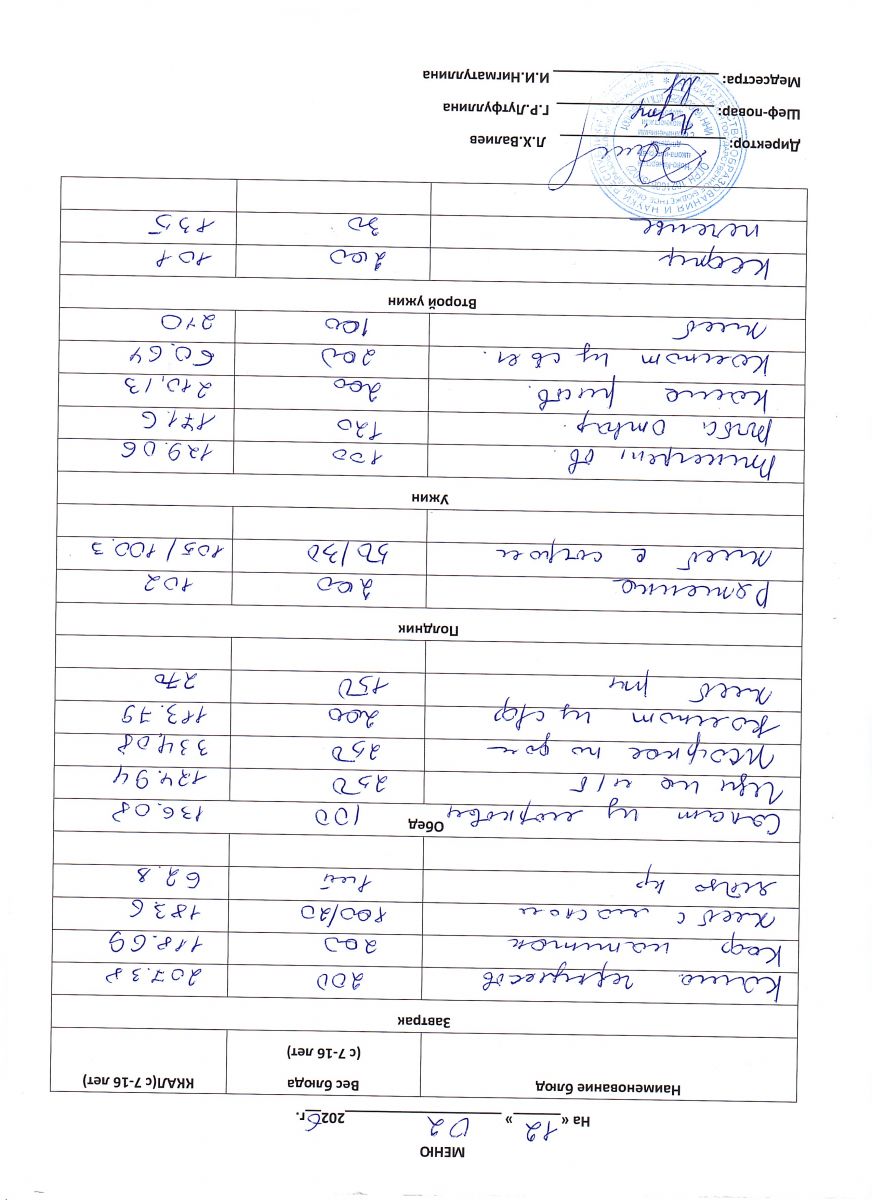 МЕНЮ
На « 12 » 02 2026г.
Наименование блюд Вес блюда (с 7-16 лет) ККАЛ(с 7-16 лет)
Завтрак
Каша геркулесов 200 207.38
Коф напиток 200 118.69
хлеб с маслом 100/20 183.6
яйцо кр 1шт 62.8
Обед
Салат из моркови 100 136.08
Лапша 250 124.94
Жаркое по дом 250 334,08
Компот из с/фр 200 113.79
хлеб рж 150 270
Полдник
Ряженка 200 102
хлеб с сыром 50/30 105/100.3
Ужин
Винегрет ов. 100 129.06
Рыба отвар. 120 171.6
Каша рисов. 200 210,13
Компот из св яг. 200 60.64
хлеб 100 210
Второй ужин
Кефир 200 101
печенье 30 135
Директор: Л.Х.Валиев
Шеф-повар: Г.Р.Лутфуллина
Медсестра: И.И.Нигматуллина